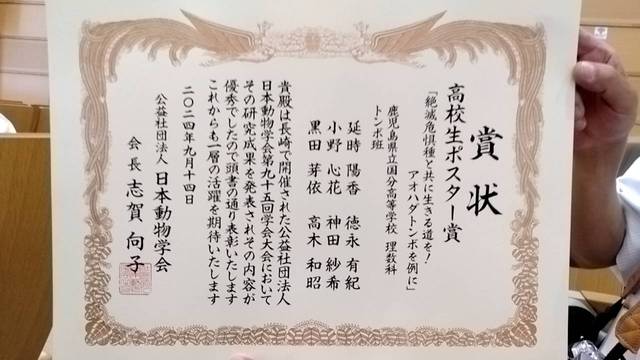 賞状
高校生ポスター賞
「絶滅危惧種と共に生きる道を!
アオハダトンボを例に」
鹿児島県立国分高等学校 理数科
トンボ班
延時 陽香 徳永 有紀
小野 心花 神田 紗希
黒田 芽依 高木 和昭
貴殿は長崎で開催された公益社団法人
日本動物学会第九十五回学会大会において
その研究成果を発表されその内容が
優秀でしたので頭書の通り表彰いたします
これからも一層の活躍を期待いたします
二〇二四年九月十四日
公益社団法人 日本動物学会
会長 志賀 向子